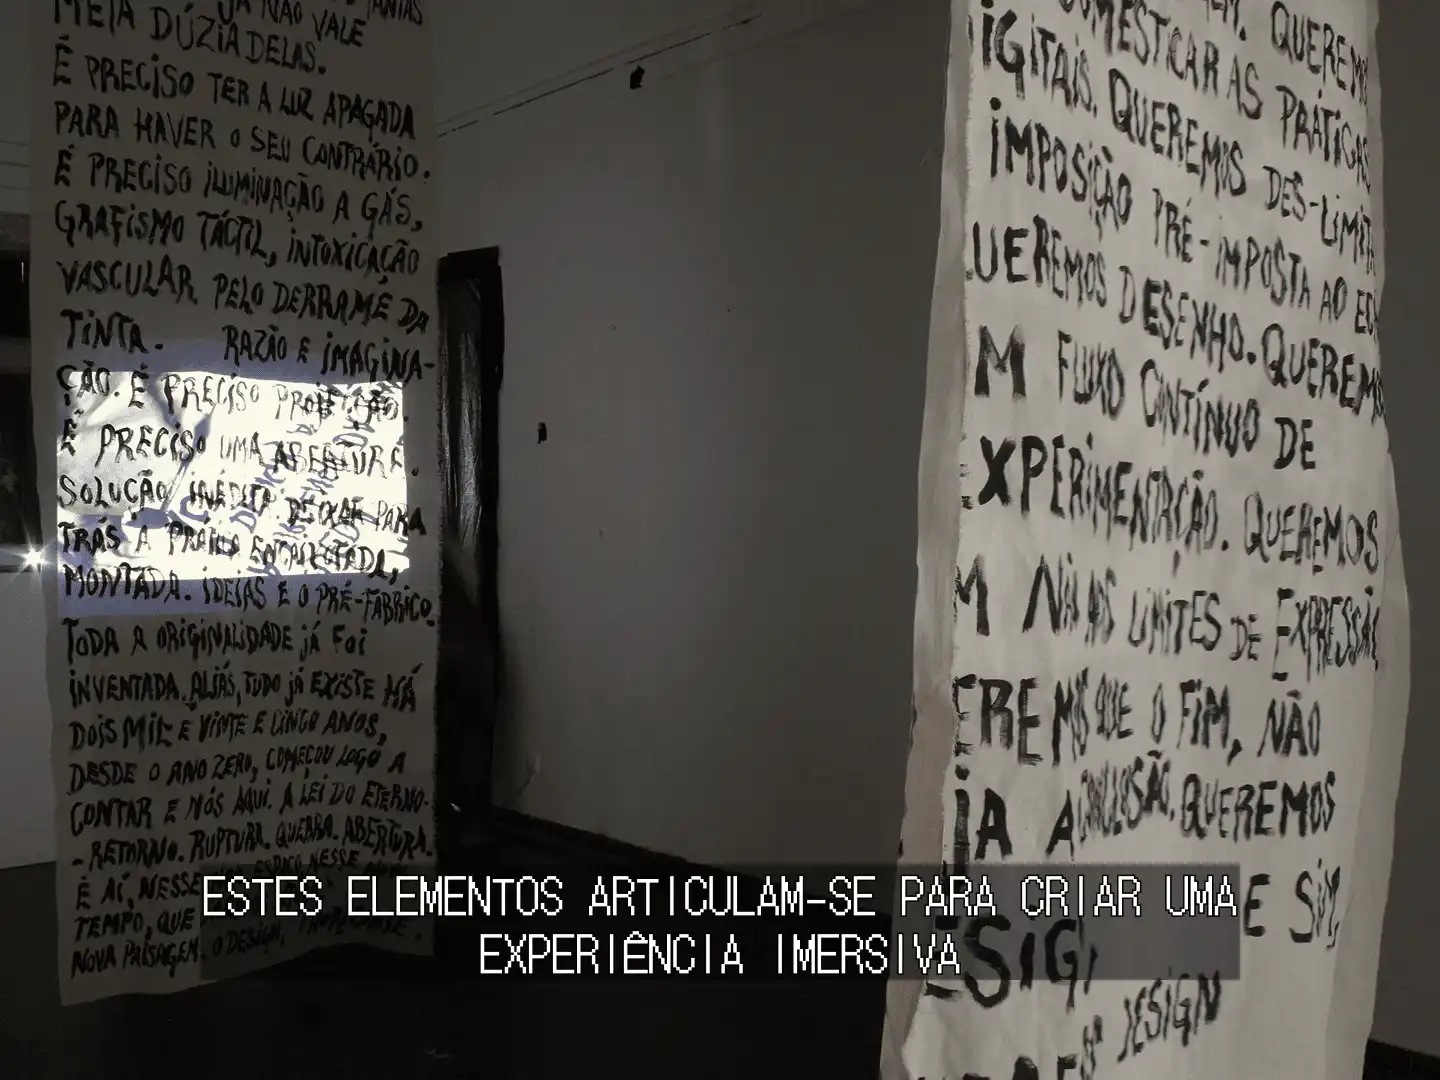 MEIA DÚZIA DELAS.
JÁ NÃO VALE
É PRECISO TER A LUZ APAGADA
PARA HAVER O SEU CONTRÁRIO.
É PRECISO ILUMINAÇÃO A GÁS,
GRAFISMO TÁCTIL, INTOXICAÇÃO
VASCULAR PELO DERRAME DA
TINTA. RAZÃO E IMAGINA-
ÇÃO. É PRECISO PROJEÇÃO.
É PRECISO UMA ABERTURA.
SOLUÇÃO INÉDITA: DEIXAR PARA
TRÁS A PRÁTICA ENCAIXOTADA,
MONTADA. IDEIAS E O PRÉ-FABRICO.
TODA A ORIGINALIDADE JÁ FOI
INVENTADA. ALIÁS, TUDO JÁ EXISTE HÁ
DOIS MIL E VINTE E CINCO ANOS,
DESDE O ANO ZERO, COMEÇOU LOGO A
CONTAR E NÓS AQUI. A LEI DO ETERNO-
-RETORNO. RUPTURA. QUEBRA. ABERTURA.
É AÍ, NESSE ESPAÇO, NESSE
TEMPO, QUE
NOVA PAISAGEM. O DESIGN,
QUEREMOS
DOMESTICAR AS PRÁTICAS
DIGITAIS. QUEREMOS DES-LIMIT
IMPOSIÇÃO PRÉ-IMPOSTA AO
QUEREMOS DESENHO. QUEREMOS
M FLUXO CONTÍNUO DE
EXPERIMENTAÇÃO. QUEREMOS
M LIMITES DE EXPRESSÃO
EREMOS QUE O FIM, NÃO
JA A CONCLUSÃO. QUEREMOS
E SIM,
ESIGN
DESIGN
ESTES ELEMENTOS ARTICULAM-SE PARA CRIAR UMA
EXPERIÊNCIA IMERSIVA